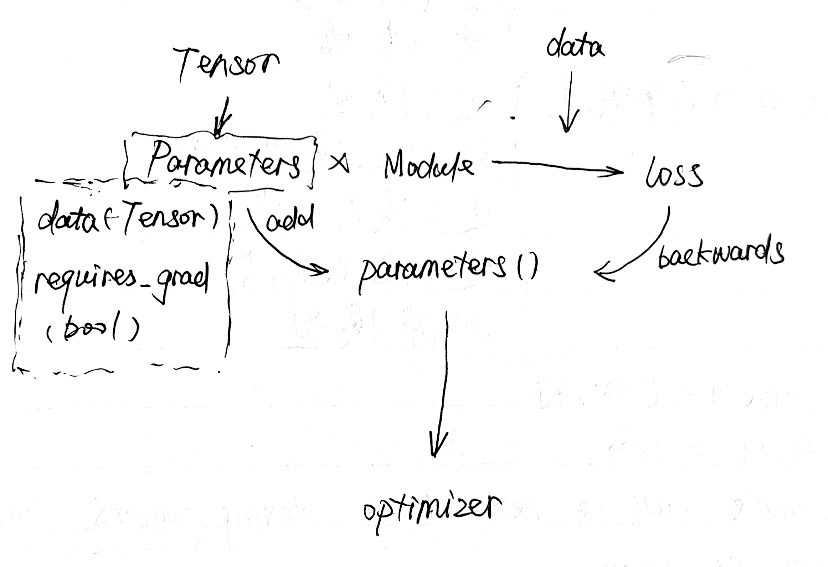 data
Tensor
Parameters × Module
loss
data(Tensor)
add
requires_grad
(bool)
parameters()
backwards
optimizer